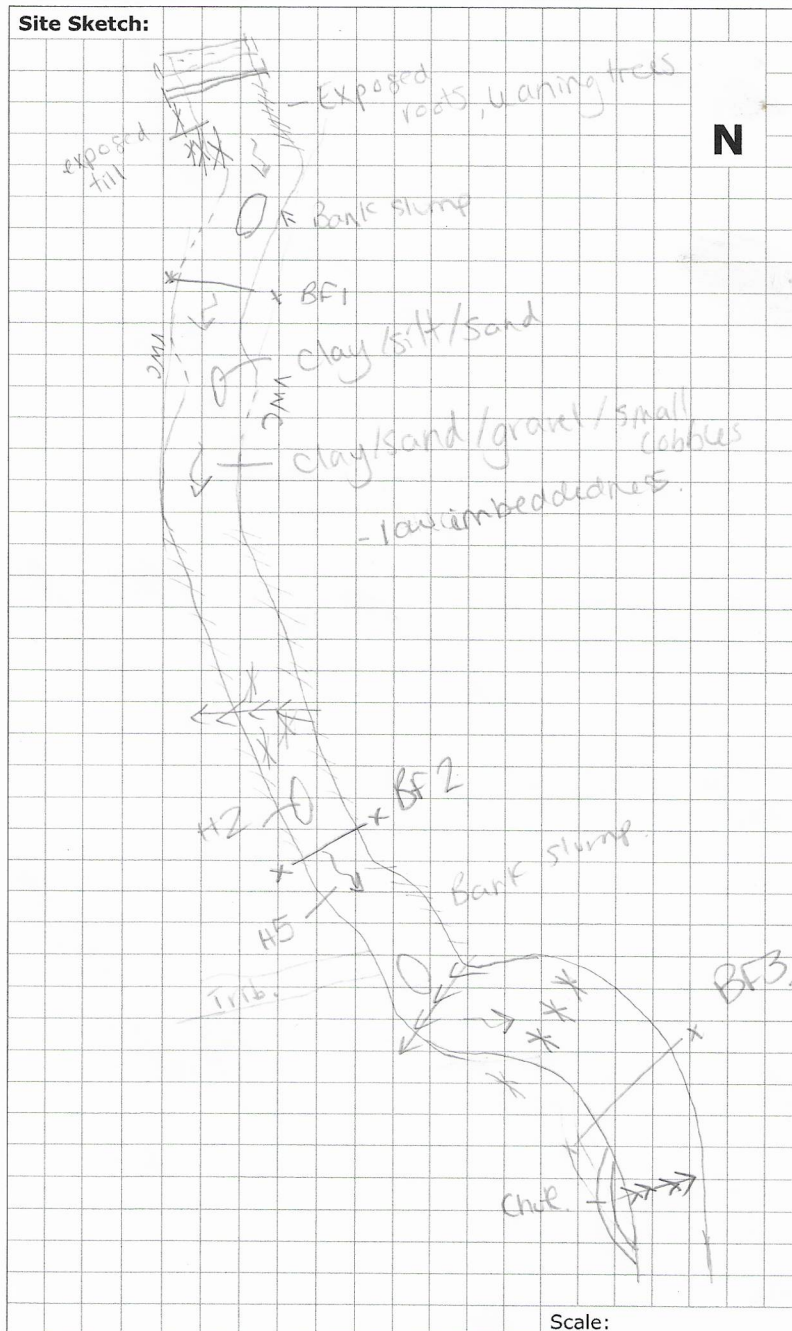 Site Sketch:
- Exposed
roots, leaning trees
N
exposed
till
Bank slump
BF1
VWC
clay/silt/sand
VWC
clay/sand/gravel/small
cobbles
- low imbeddedness.
BF2
H2
Bank slump.
H5
Trib.
BF3.
Chute.
Scale: